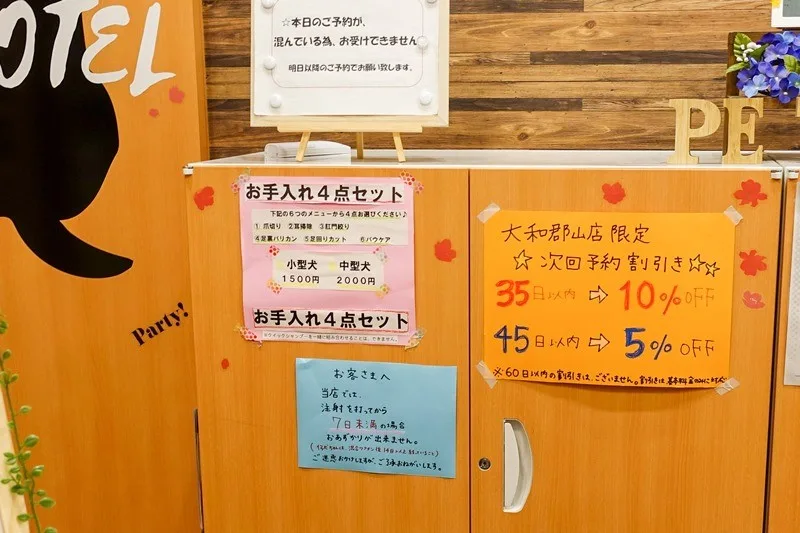 OTEL
☆本日のご予約が、
混んでいる為、お受けできません
明日以降のご予約でお願い致します。
PE
Party!
お手入れ4点セット
下記の6つのメニューから4点お選びください♪
1.爪切り 2.耳掃除 3.肛門絞り
4.足裏バリカン 5.足回りカット 6.パウケア
小型犬 中型犬
1500円 2000円
お手入れ4点セット
※クイックシャンプーを一緒に組み合わせることは、できません。
お客さまへ
当店では、
注射を打ってから
7日未満の場合
おあずかりが出来ません。
ご迷惑おかけしますが、ご了承おねがいします。
大和郡山店限定
☆次回予約割引き☆☆
35日以内 ⇨ 10%OFF
45日以内 ⇨ 5%OFF
※60日以内の割引きは、ございません。割引きは基本料金のみに